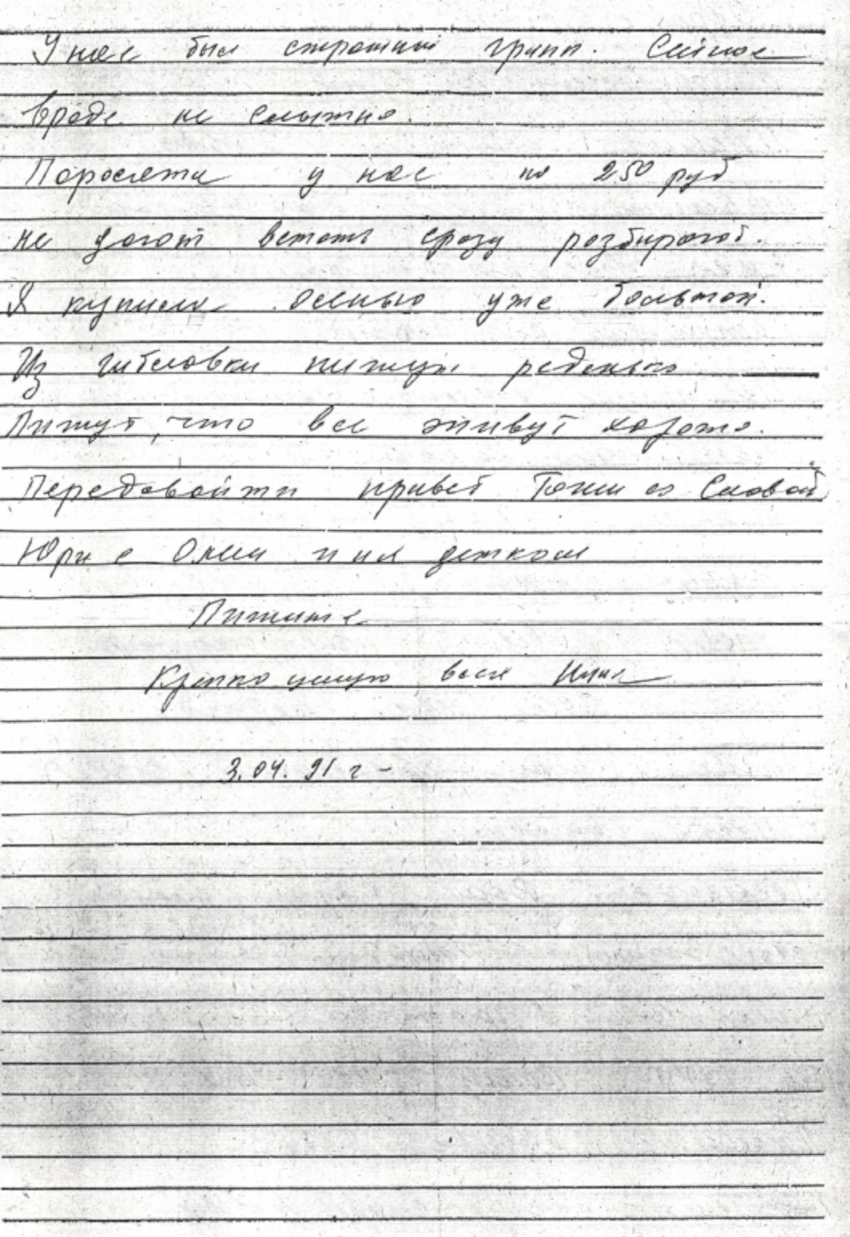 У нас был страшный грипп. Сейчас
вроде не слышно.
Поросята у нас по 250 руб
не дают встать сразу розбирают.
Я купила осенью уже большой.
Из пишут реденько
Пишут, что все живут хорошо.
Передовайти привет Тони со Славой
Юри с Олей и их деткам
Пишите
Крепко целую всех Нина
3.04.91 г -